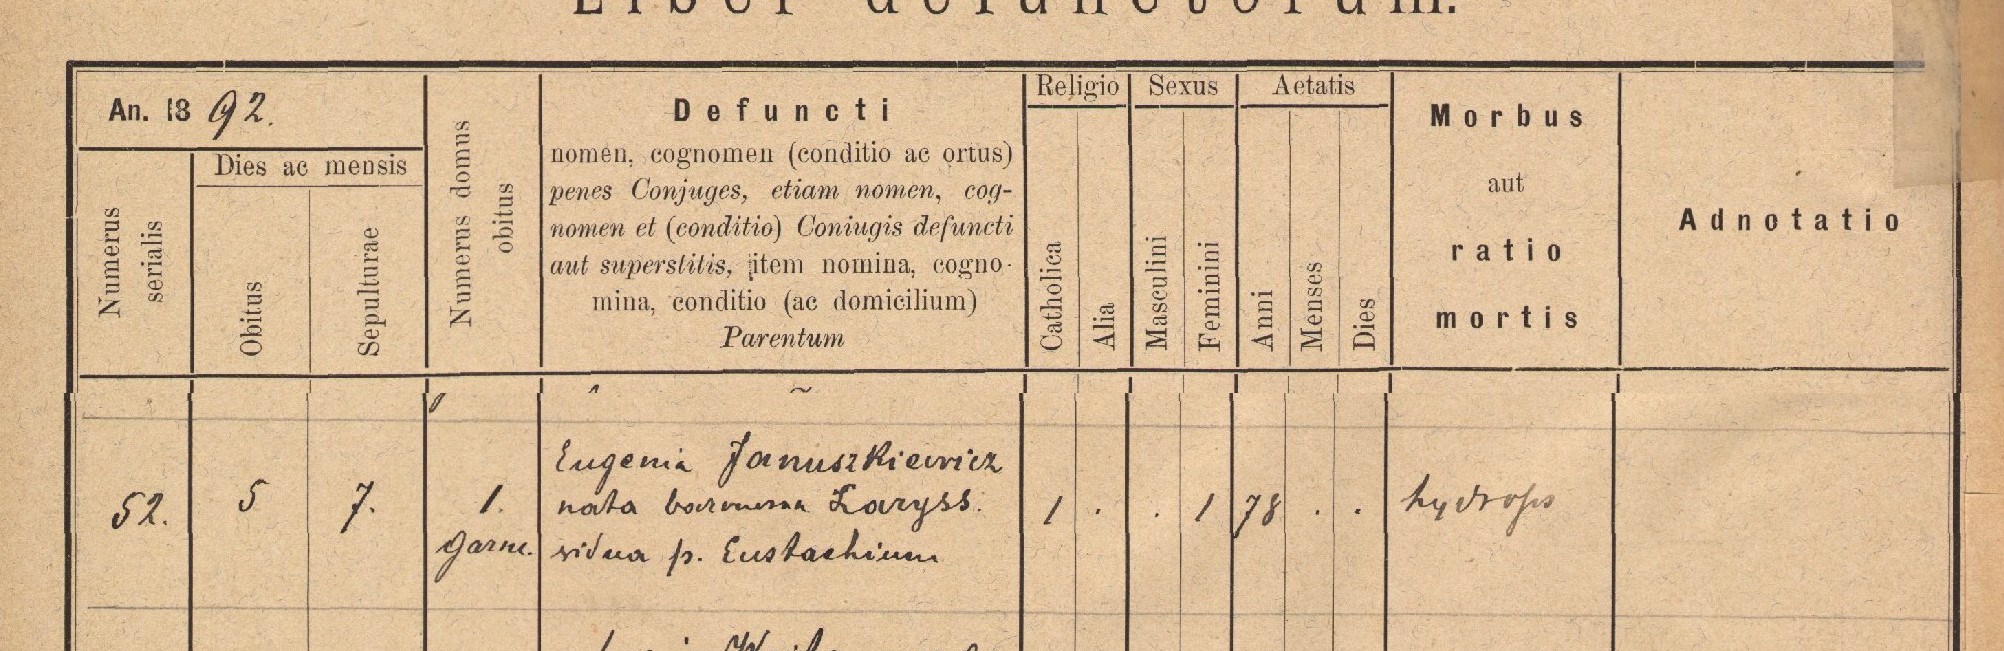 Liber defunctorum.
An. 1892.
Numerus serialis
Dies ac mensis
Obitus
Sepulturae
Numerus domus obitus
Defuncti
nomen, cognomen (conditio ac ortus)
penes Conjuges, etiam nomen, cog-
nomen et (conditio) Coniugis defuncti
aut superstitis, item nomina, cogno-
mina, conditio (ac domicilium)
Parentum
Religio
Catholica
Alia
Sexus
Masculini
Feminini
Aetatis
Anni
Menses
Dies
Morbus
aut
ratio
mortis
Adnotatio
52. 5 7. 1. Garnc.
Eugenia Januszkiewicz
nata baronessa Laryss.
vidua p. Eustachium
1 . . 1 78 . . hydrops